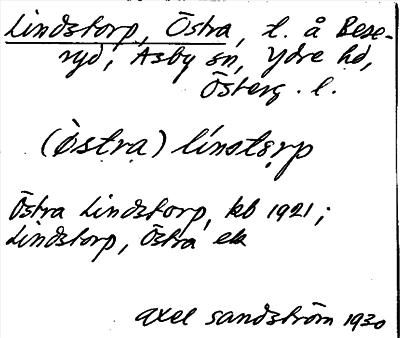 Lindstorp, Östra, t. å Bese-
ryd, Asby sn, Ydre hd,
Österg. l.
(östra) línstǫrp
Östra Lindstorp, kb 1921;
Lindstorp, Östra ek
Axel Sandström 1930